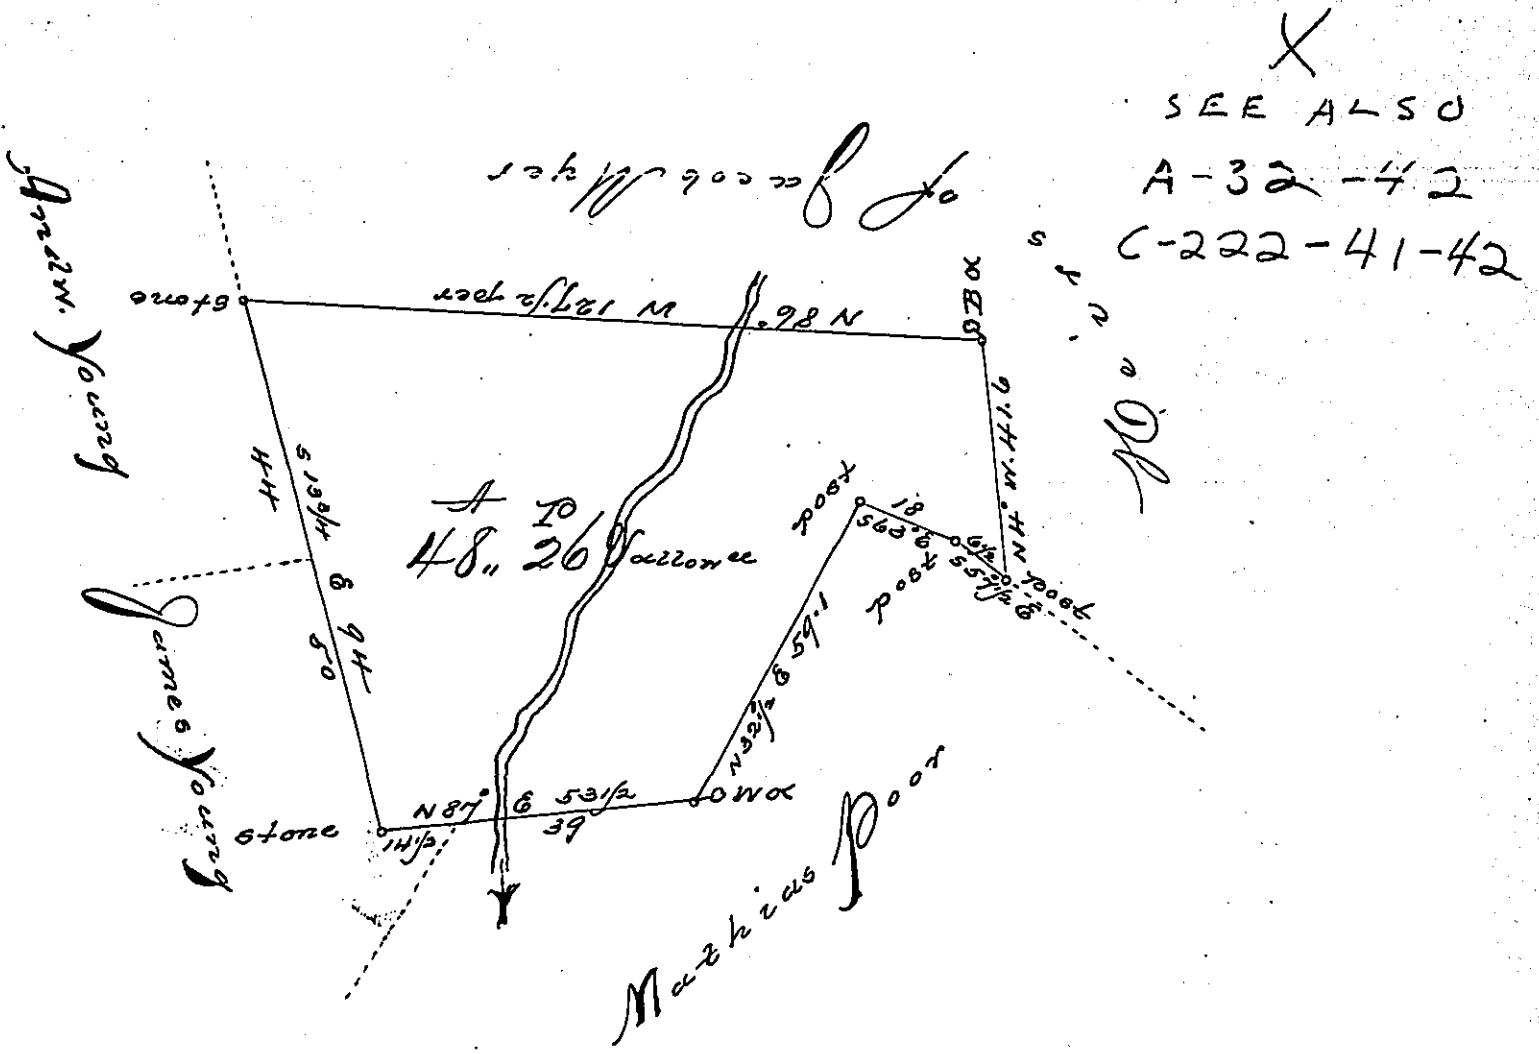 X
SEE ALSO
A-32-42
C-222-41-42
of Jacob Myer
Andrw. Young
James Young
Mathias Poor
stone
N 86° W 127 1/2 per
BO
N 4° W. 41.6
post
S 57 1/2 E
6 1/2
post
S 63° E
18
post
N 32 1/2° E 59.1
WO
N 87° E 53 1/2
14 1/2
39
stone
S 13 3/4 E 94
44
50
A P
48,, 26 & allowce